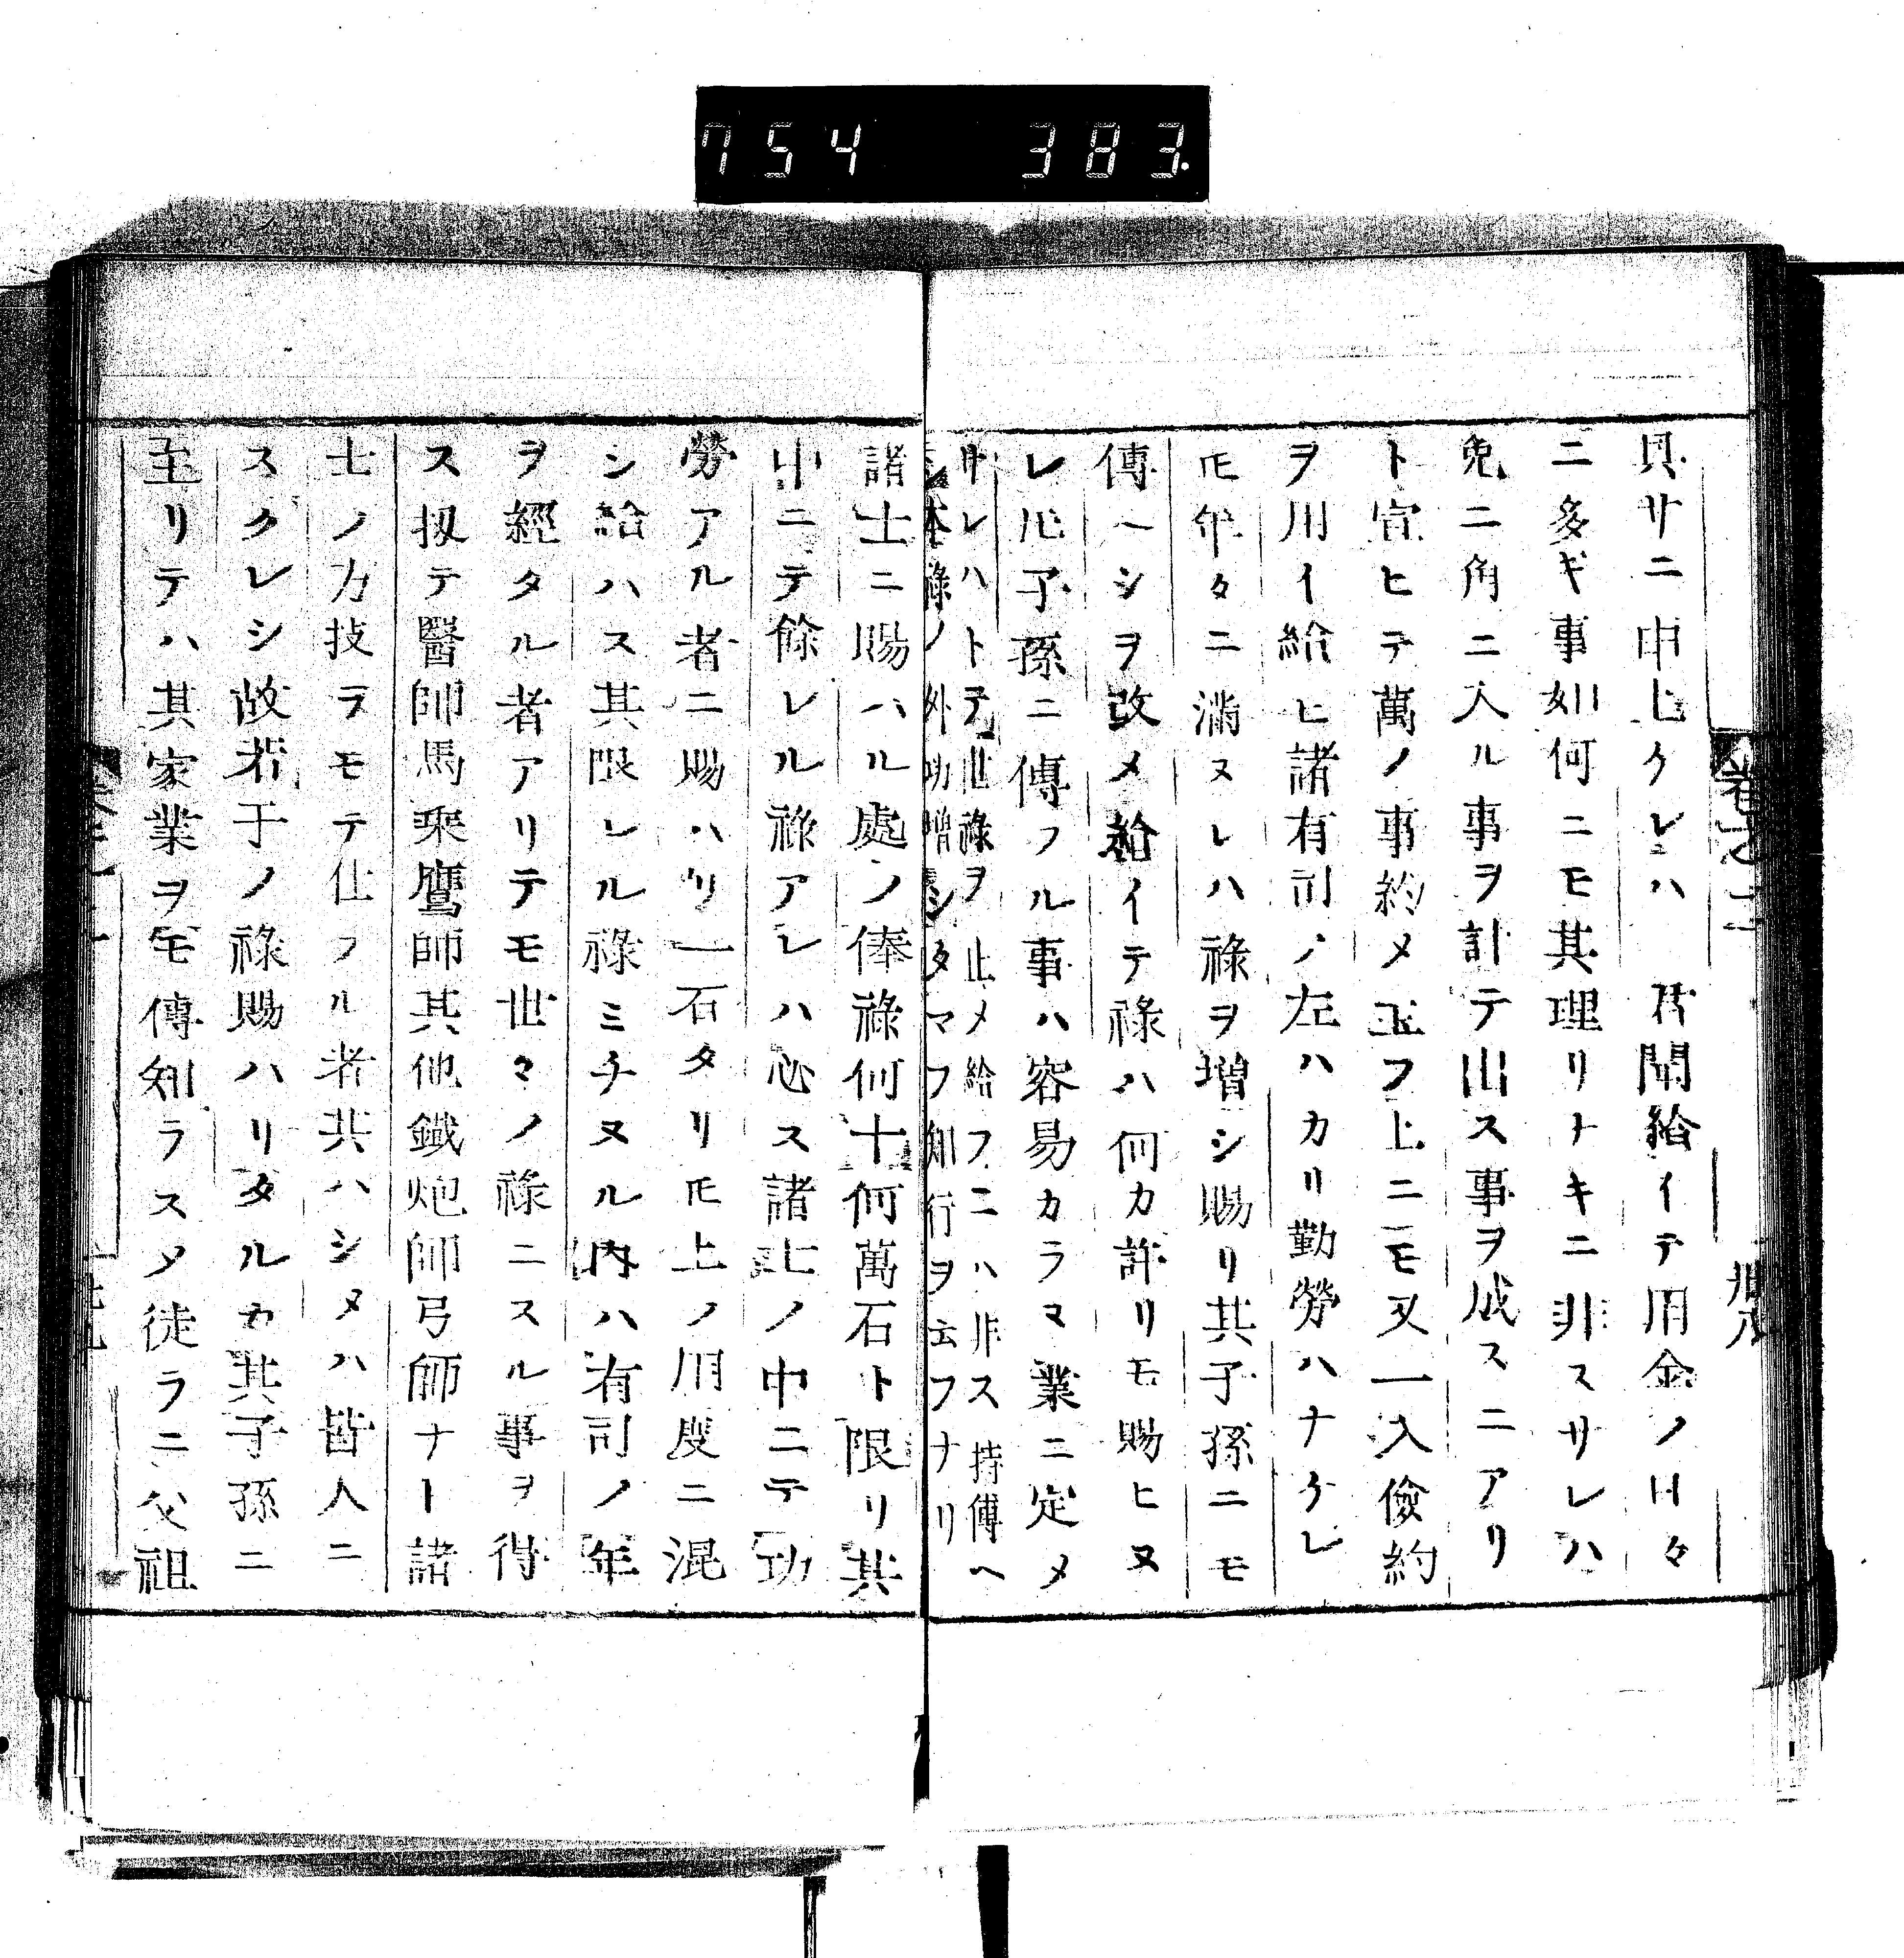 754 383
具サニ申上ケレハ 君聞給イテ用金ノ日々
ニ多ギ事如何ニモ其理リナキニ非スサレハ
兔ニ角ニ入ル事ヲ計テ出ス事ヲ成スニアリ
ト宣ヒテ萬ノ事約メ玉フ上ニモ又一入儉約
ヲ用イ給ヒ諸有司ノ左ハカリ勤勞ハナケレ
𪜈年々ニ滿ヌレハ祿ヲ増シ賜リ其子孫ニモ
傳ヘシヲ改メ給イテ祿ハ何カ許リモ賜ヒヌ
レ𪜈子孫ニ傳フル事ハ容易カラマ業ニ定メ
サレハトテ世祿ヲ止メ給フニハ非ス持傳ヘ
シ本祿ノ外功増シタマフ知行ヲ云フナリ
諸士ニ賜ハル處ノ俸祿何十何萬石ト限リ其
中ニテ餘レル祿アレハ必ス諸士ノ中ニテ功
勞アル者ニ賜ハリ一石タリ𪜈上ノ用度ニ混
シ給ハス其限レル祿ミチヌル内ハ有司ノ年
ヲ經タル者アリテモ世々ノ祿ニスル事ヲ得
ス扨テ醫師馬乘鷹師其他鐵炮師弓師ナト諸
士ノ力技ヲモテ仕フル者共ハシメハ皆人ニ
スクレシ故若干ノ祿賜ハリタルカ其子孫ニ
至リテハ其家業ヲモ傳知ラスメ徒ラニ父祖